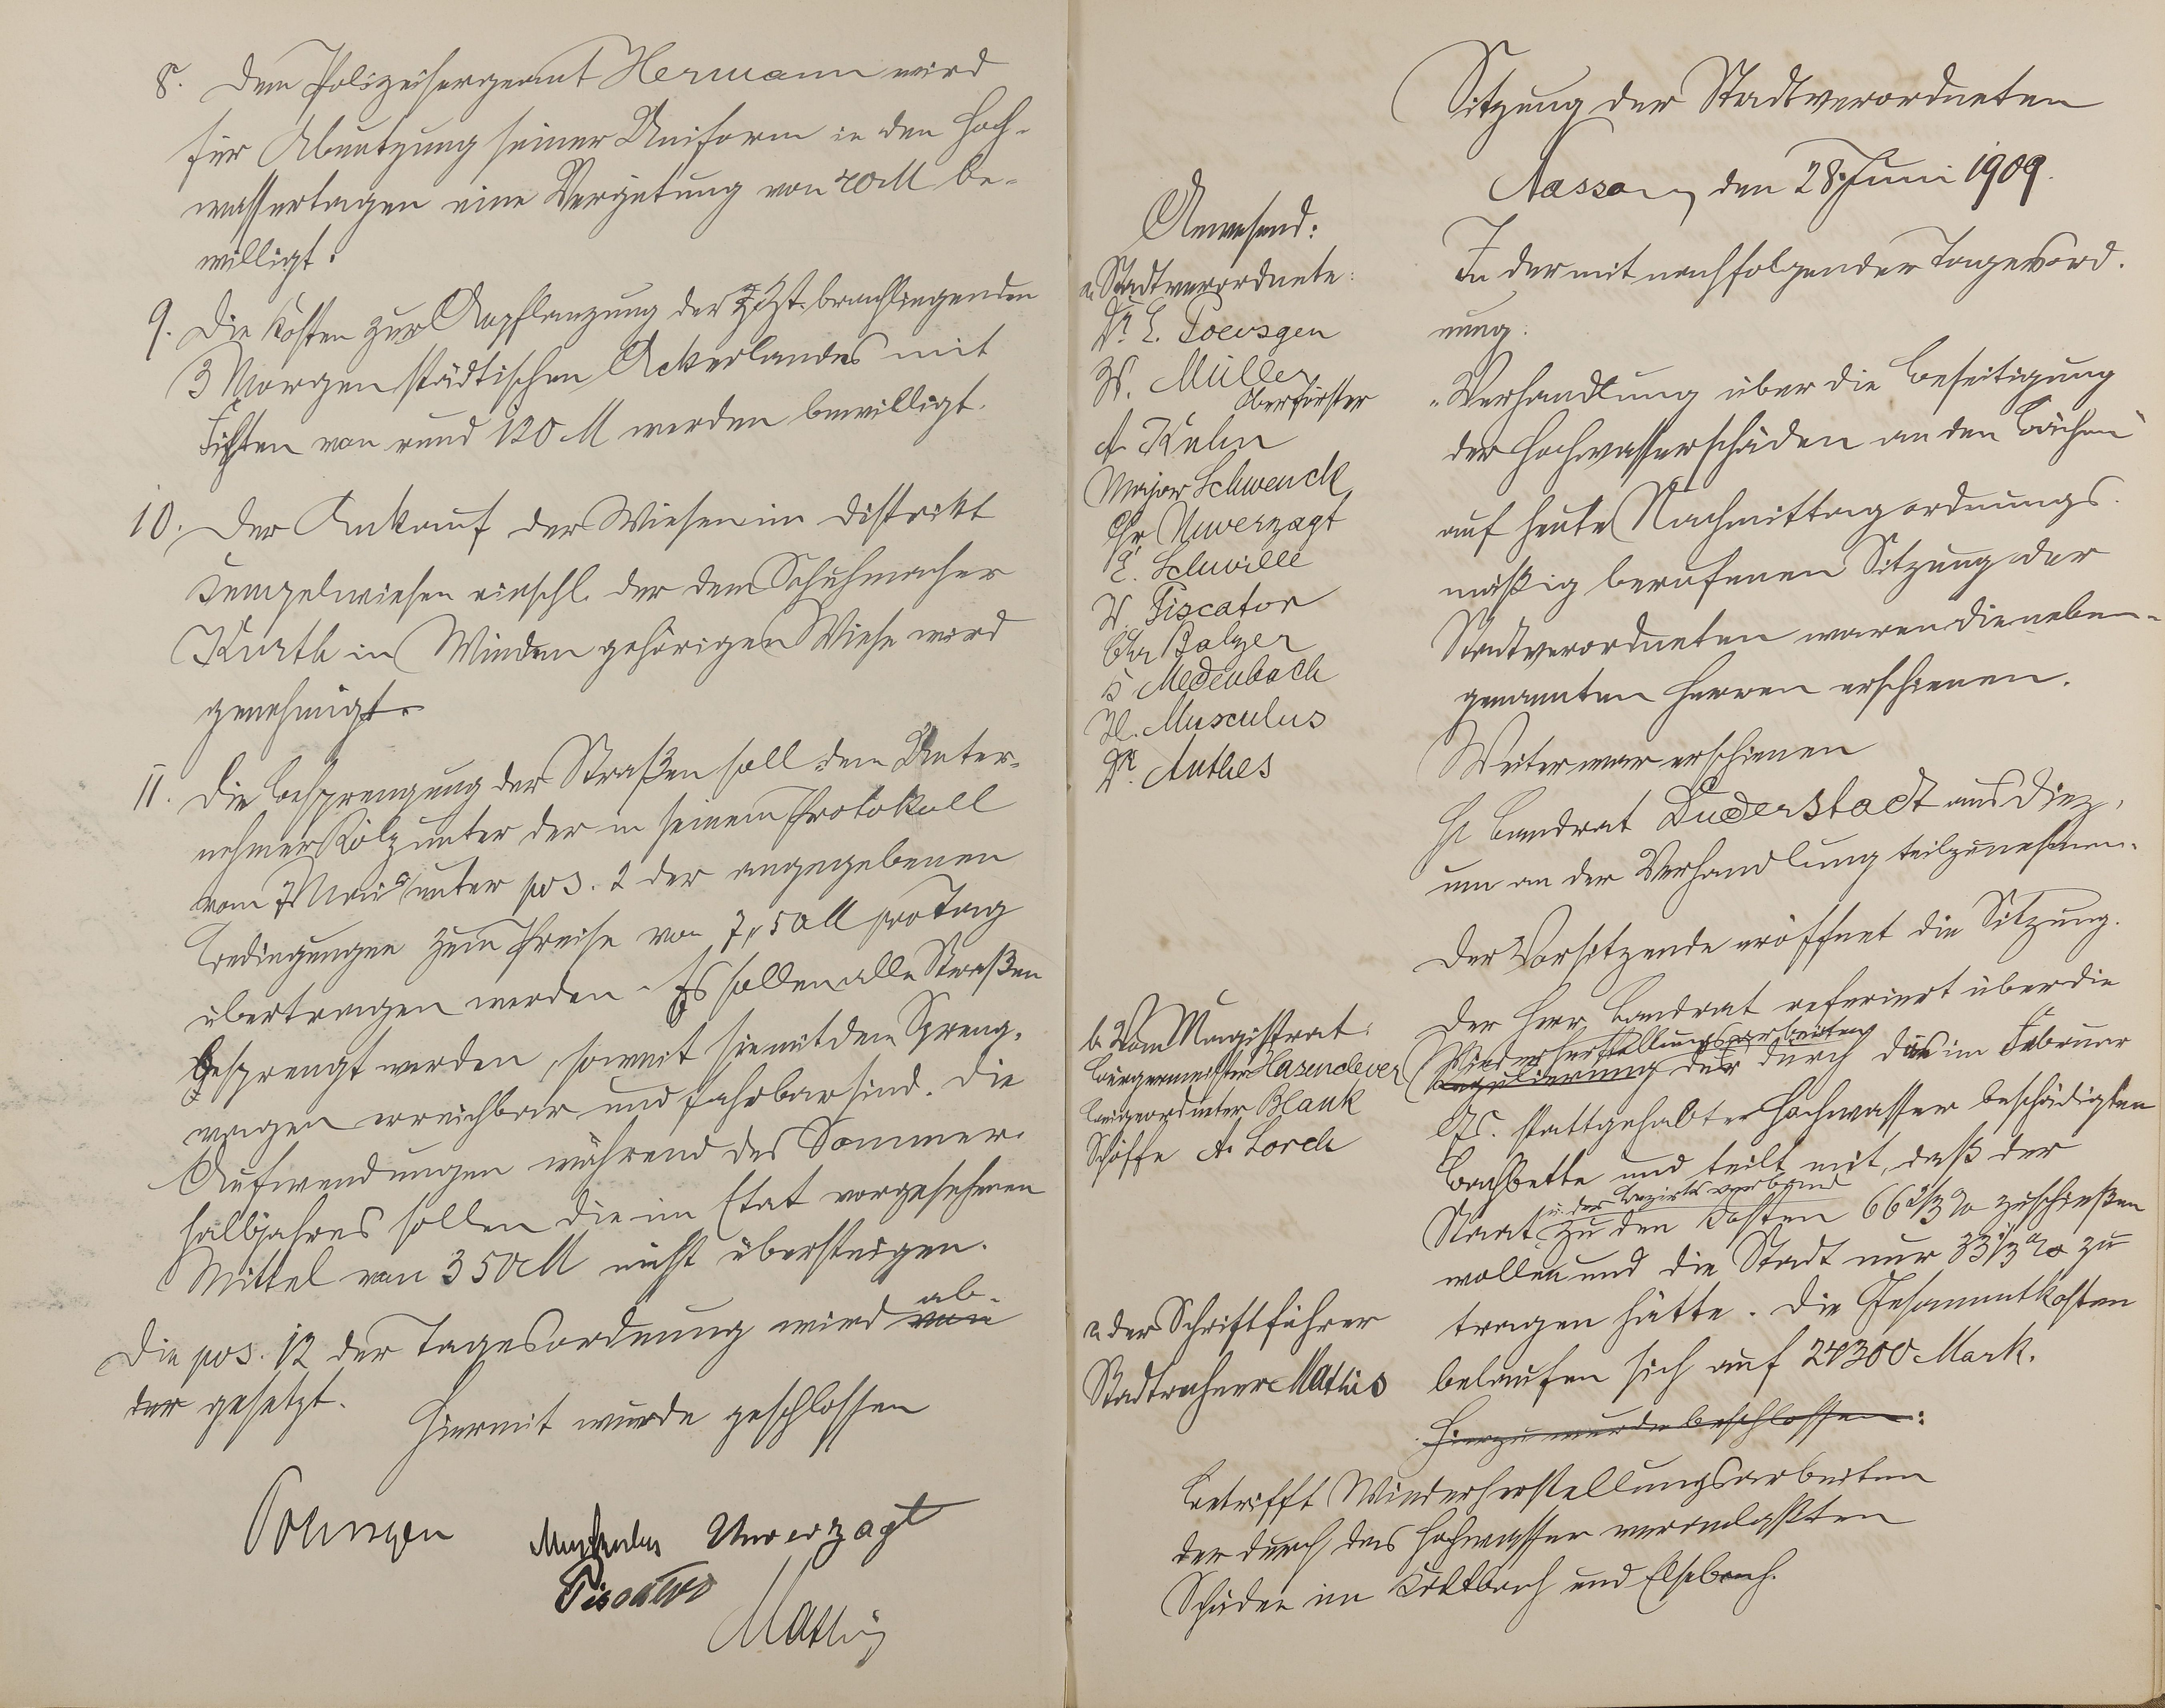 8. Dem Polizeisergeant Hermann wird
für Abnutzung seiner Uniform in den Hoch-
wassertagen eine Vergütung von 20 M be-
willigt.
9. Die Kosten zur Anpflanzung der z. Zt. brachliegenden
3 Morgen städtischen Ackerlandes mit
Fichten von rund 120 M werden bewilligt.
10. Der Ankauf der Wiesen im Distrikt
einschl. der dem Schuhmacher
Kurth in Winden gehörigen Wiese wird
genehmigt.
11. Die Besprengung der Straßen soll dem Unter-
nehmer Kölz unter der in seinem Protokoll
vom 7 Mai unter pos. 2 der angegebenen
Bedingungen zum Preise von 7,50 M pro Tag
übertragen werden. Es sollen alle Straßen
besprengt werden, soweit sie mit dem Spreng-
wagen erreichbar und fahrbar sind. Die
Aufwendungen während des Sommer-
halbjahres sollen die im Etat vorgesehenen
Mittel von 350 M nicht übersteigen.
Die pos. 12 der Tagesordnung wird von ab-
der gesetzt.
Hiermit wurde geschlossen
Musculus Unverzagt
Piscator
Mathis
Sitzung der Stadtverordneten
Nassau, den 28. Juni 1909.
Anwesend:
a. Stadtverordnete:
Dr. E. Poensgen
W. Müller
Oberförster
A. Kuhn
Major Schwenck
Chr. Unverzagt
E. Schwille
W. Piscator
Chr Balzer
Medenbach
H. Musculus
Dr. Anthes
b. Vom Magistrat:
Bürgermeister Hasenclever
Beigeordneter Blank
Schöffe A. Lorch
c. der Schriftführer
Stadtrechner Mathis
In der mit nachfolgender Tagesord-
nung:
"Verhandlung über die Beseitigung
der Hochwasserschäden an den Bächen"
auf heute Nachmittag ordnungs-
mäßig berufenen Sitzung der
Stadtverordneten waren die neben-
genannten Herren erschienen.
Weiter war erschienen
H Landrat Duderstadt aus Diez,
um an der Verhandlung teilzunehmen.
Der Vorsitzende eröffnet die Sitzung.
Der Herr Landrat referiert über die
Wiederherstellungsarbeiten
Regulierung der durch das im Februar
lfs. stattgehabte Hochwasser beschädigten
Bachbette und teilt mit, daß der
u. der Bezirksverband
Staat zu den Kosten 66 2/3 % zuschießen
wollen und die Stadt nur 33 1/3 % zu
tragen hätte. Die Gesammtkosten
belaufen sich auf 24300 Mark.
Hierzu wurde beschlossen:
Betrifft Wiederherstellungsarbeiten
der durch das Hochwasser veranlaßten
Schäden im Kaltbach und Elsebach.